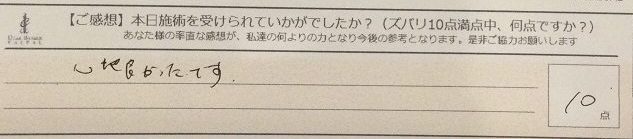 【ご感想】本日施術を受けられていかがでしたか？（ズバリ10点満点中、何点ですか？）
あなた様の率直な感想が、私達の何よりの力となり今後の参考となります。是非ご協力お願いします
心地良かったです.
10
点